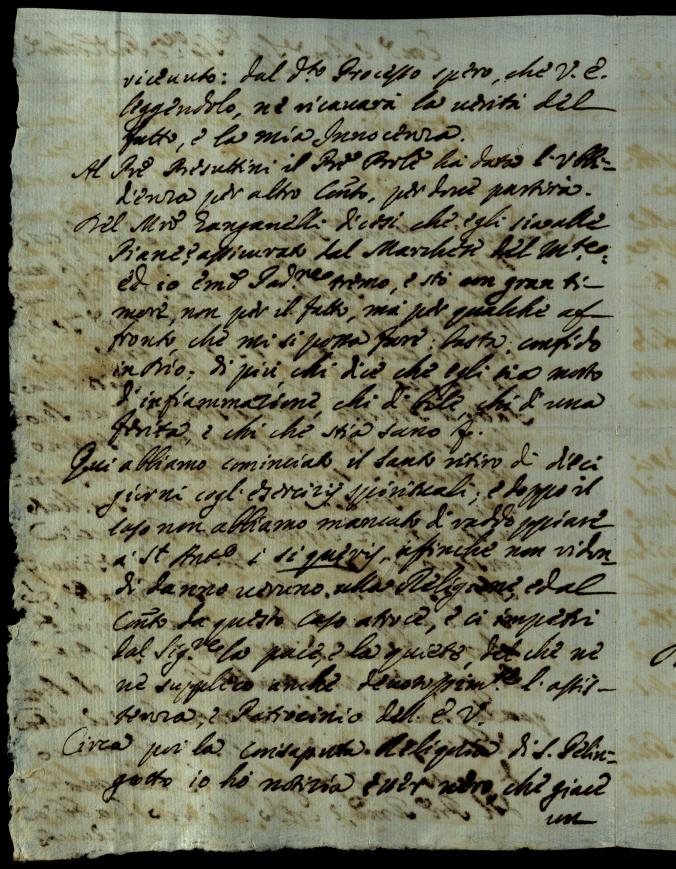 vicenuto: dal d.to Processo spero, che V. E.
leggendolo, ne ricavarà la verità del
fatto, e la mia Innocenza.
Al Pre Presuttini il Pre Prole ha data l'ubbi=
dienza per altro Cõto, per dove partirà.
Del Mro Zanganelli dicesi che egli sia alle
Piane, assicurato dal Marchese del
ed io Emo Padrne tremo, e stò con gran ti=
more, non per il fatto, ma per qualche af=
fronto che mi si possa fare: basta: confido
in Dio; di più chi dice che egli sia morto
d'infiammazione, chi di bile, chi di una
ferita, e chi che stia sano
Qui abbiamo cominciato il santo ritiro di dieci
giorni cogl'esercizij spirituali; e doppo il
caso non abbiamo mancato di raddoppiare
a St Anto i si quæris, affinche non ridon=
di danno veruno alla Religione, ed al
Cõto da questo caso atroce, e ci impetri
dal Sig.re la pace, e la quiete, del che ne
ne supplico anche devotissim.te l'assis=
tenza, e Patrocinio dell'E. V.
Circa poi la consaputa Religiosa di S. Pelin=
gotto io hò notizia esser vero, che giace
un